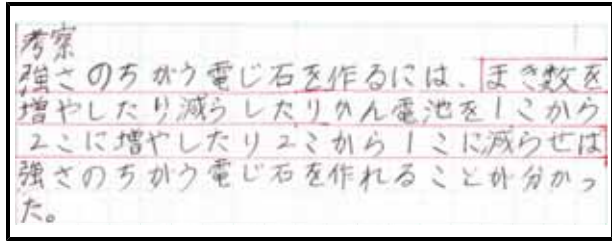 考察
強さのちがう電じ石を作るには、まき数を
増やしたり減らしたりかん電池を1こから
2こに増やしたり2こから1こに減らせば
強さのちがう電じ石を作れることが分かっ
た。